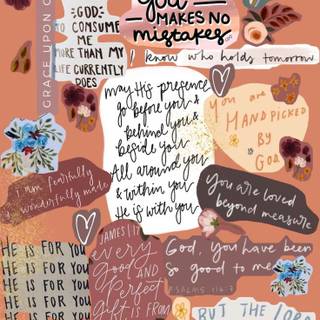 GRACE UPON G
GOD
TO CONSUME
ME
MORE THAN MY
LIFE CURRENTLY
DOES
God
MAKES NO
mistakes
I know who holds tomorrow
may His presence
go before you &
behind you &
beside you
All around you
& within you
He is with you
you are
HANDPICKED
BY
GOD
i am fearfully
& wonderfully made
You are loved
beyond measure
HE IS FOR YOU
HE IS FOR YOU
HE IS FOR YOU
HE IS FOR YOU
HE IS FOR YOU
JAMES 1:17
every
Good AND
Perfect
gift IS FROM
God, you have been
so good to me
PSALMS
BUT THE LORD